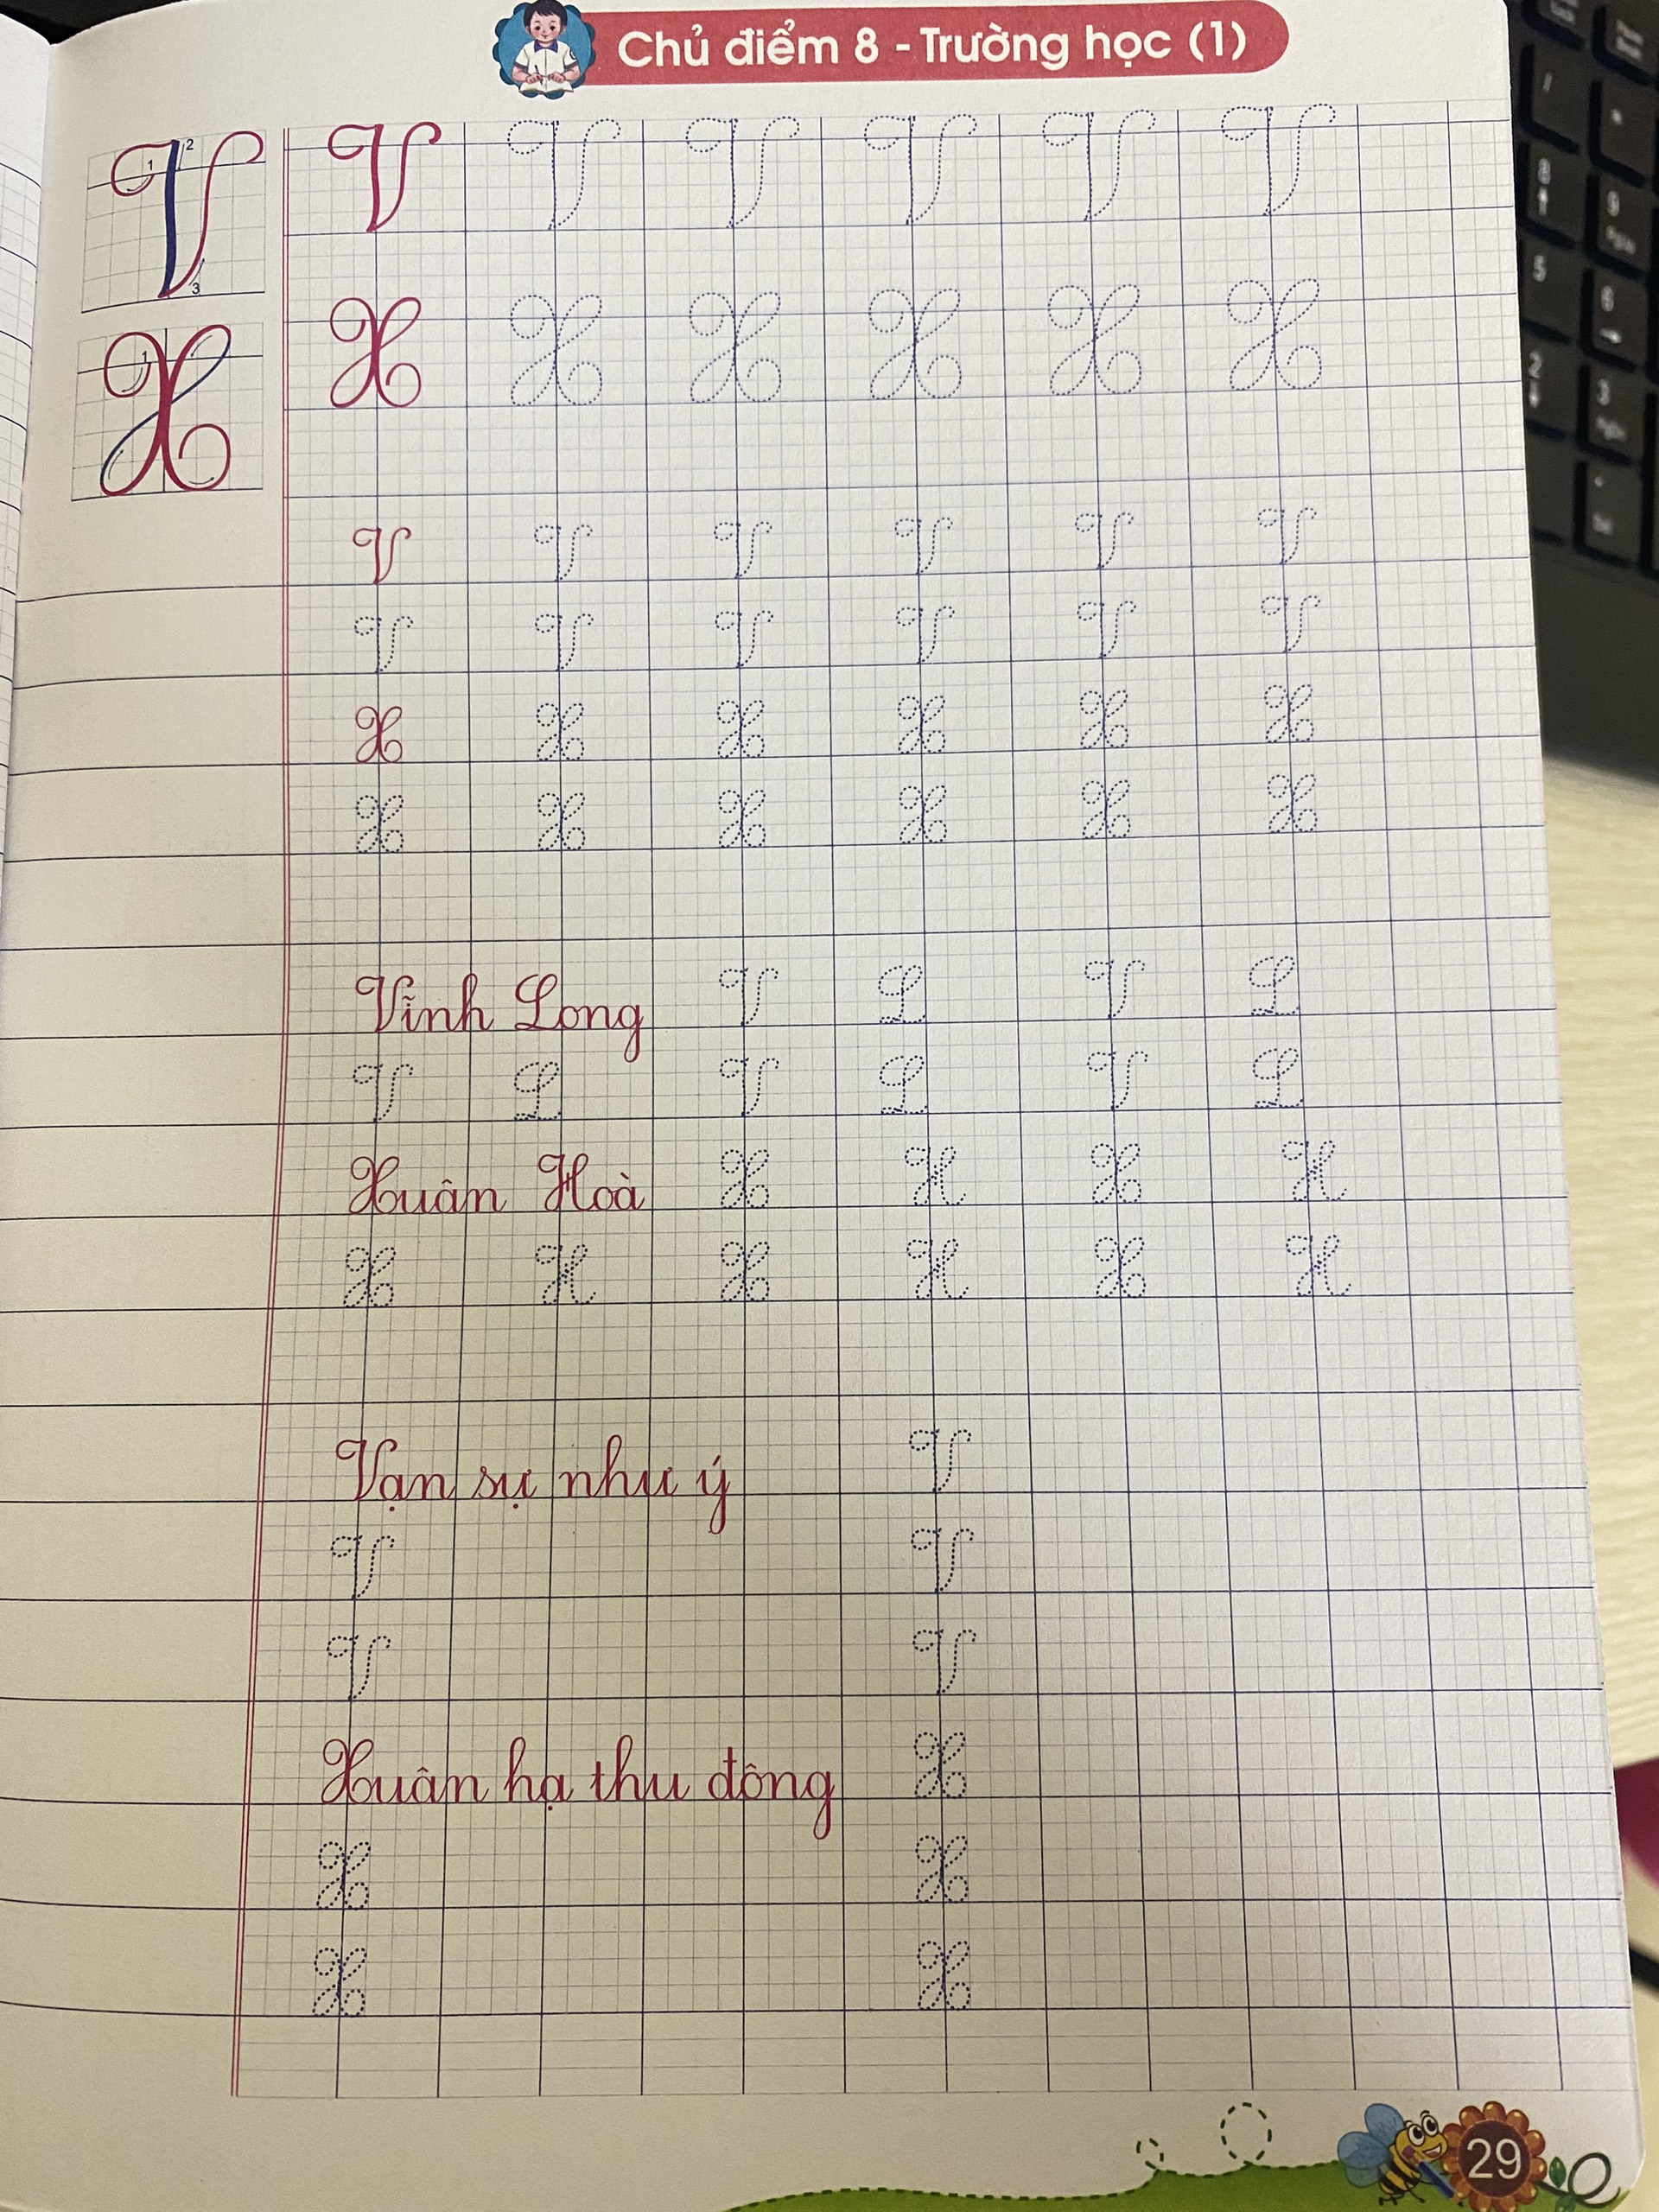 Chủ điểm 8 - Trường học (1)
1 2 3
V V V V V V V
1
X X X X X X X
V V V V V V
V V V V V V
X X X X X X
X X X X X X
Vĩnh Long V L V L
V L V L V L
Xuân Hoà X H X H
X H X H X H
Vạn sự như ý V
V V
V V
Xuân hạ thu đông X
X X
X X
29